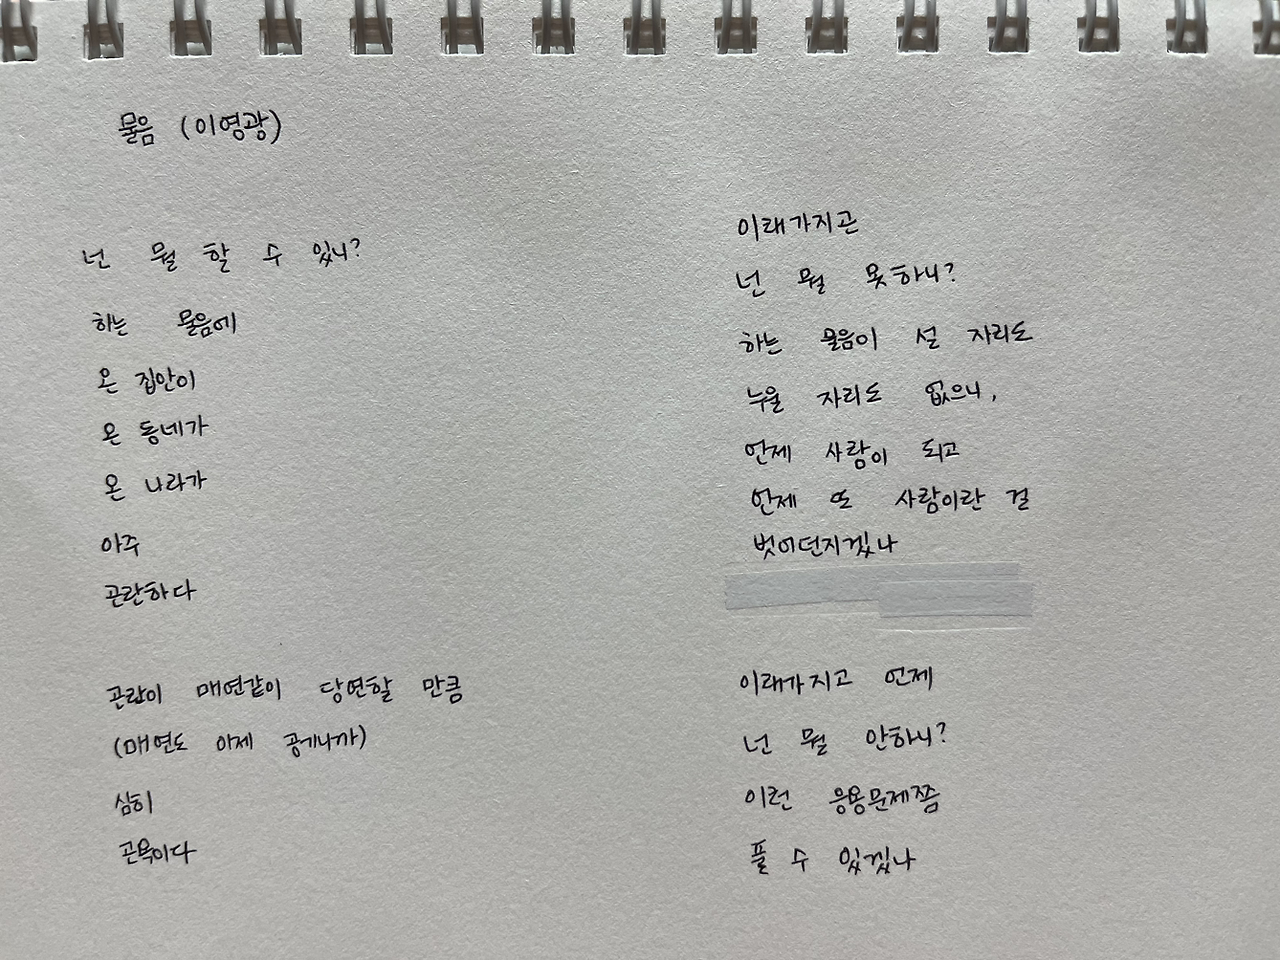 물음 (이영광)
넌 뭘 할 수 있니?
하는 물음에
온 집안이
온 동네가
온 나라가
아주
곤란하다
곤란이 매연같이 당연할 만큼
(매연도 이제 공기니까)
심히
곤욕이다
이래가지곤
넌 뭘 못하니?
하는 물음이 설 자리도
누울 자리도 없으니,
언제 사람이 되고
언제 또 사람이란 걸
벗어던지겠나
이래가지고 언제
넌 뭘 안하니?
이런 응용문제쯤
풀 수 있겠나